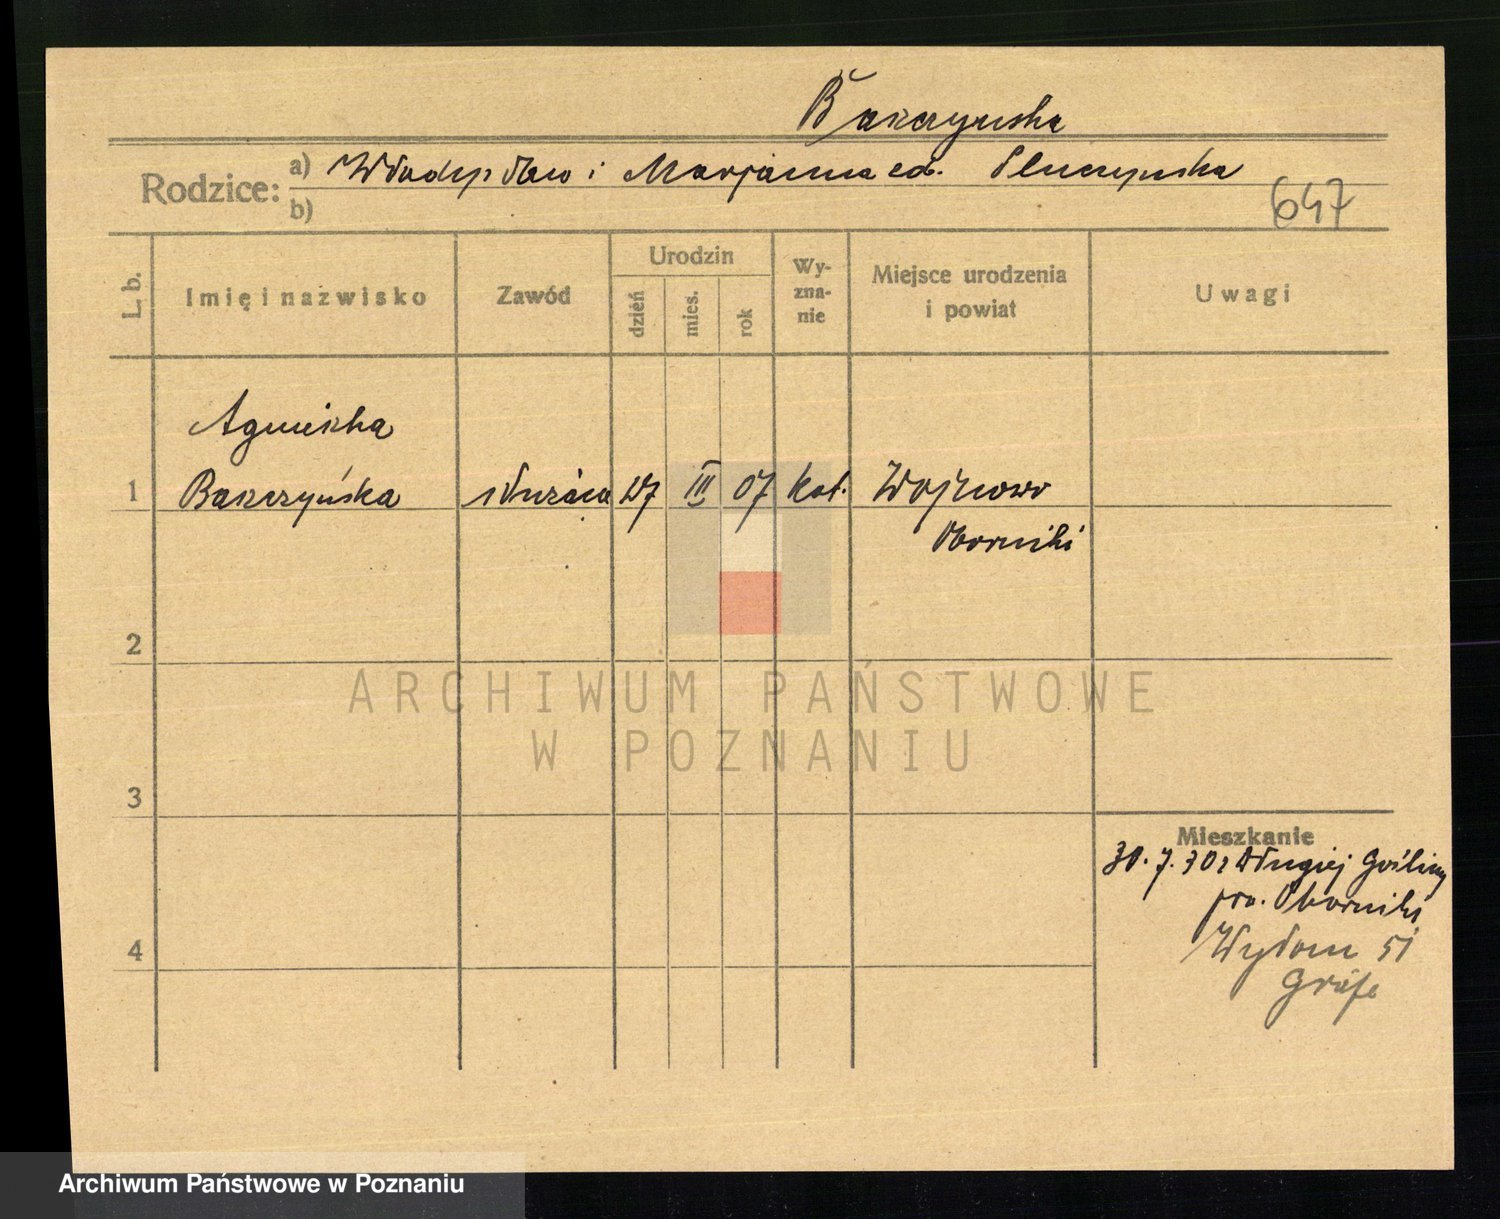 Bakczynska
Rodzice: a) Władysław i Marjanna ed.
b)
647
L. b.
Imię i nazwisko
Zawód
Urodzin
dzień
mies.
rok
Wy-
zna-
nie
Miejsce urodzenia
i powiat
Uwagi
Agnieszka
1 Bakczyńska służąca 27 III 07 kat. Wojnowo
Oborniki
2
ARCHIWUM PAŃSTWOWE
W POZNANIU
3
Mieszkanie
30.7.30 z Długiej Gośliny
pow. Oborniki
4
51
Archiwum Państwowe w Poznaniu